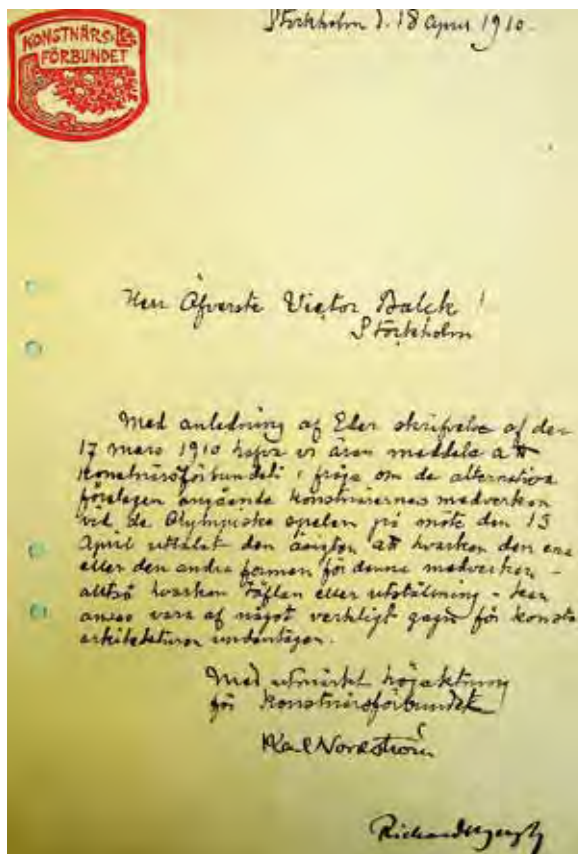 KONSTNÄRS
FÖRBUNDET
Stockholm d. 18 april 1910.
Herr Öfverste Victor Balck!
Stockholm
Med anledning af Eder skrifvelse af den
17 mars 1910 hafva vi äran meddela att
Konstnärsförbundet i fråga om de alternativa
förslagen angående konstnärernas medverkan
vid de Olympiska spelen på möte den 15
April uttalat den åsigten att hvarken den ena
eller den andra formen för denna medverkan –
alltså hvarken täflan eller utställning – kan
anses vara af något verkligt gagn för konsten
arkitekturen undantagen.
Med utmärkt högaktning
för Konstnärsförbundet
Karl Nordström
Richard